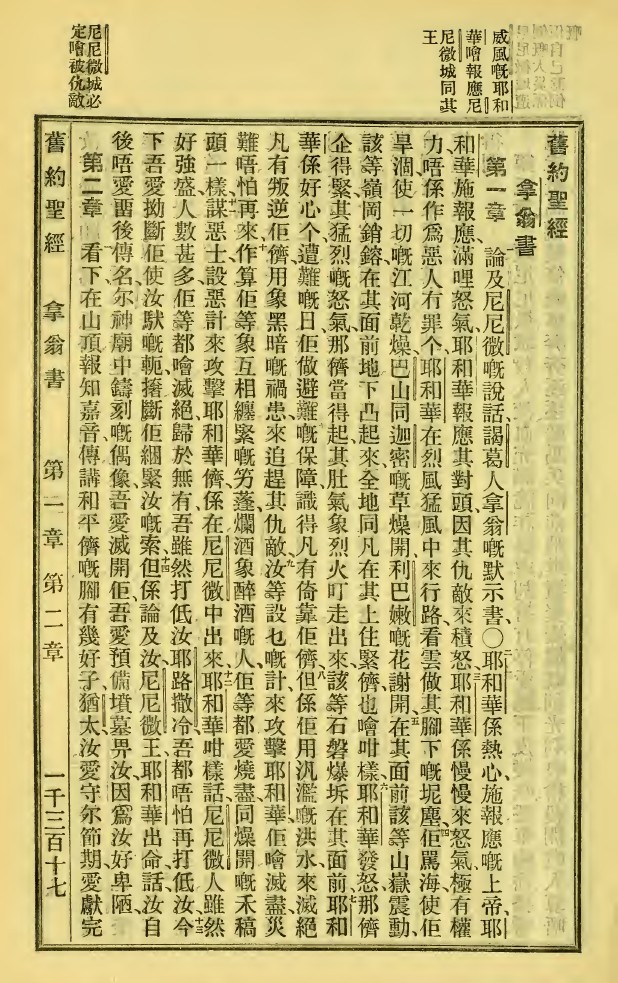 威風嘅耶和
華噲報應尼
尼微城同其
王
尼尼微城必
定噲被仇敵
舊約聖經
拿翁書
第一章 論及尼尼微嘅說話謁葛人拿翁嘅默示書〇二耶和華係熱心施報應嘅上帝耶
和華施報應滿哩怒氣耶和華報應其對頭因其仇敵來積怒三耶和華係慢慢來怒氣極有權
力唔係作爲惡人有罪个耶和華在烈風猛風中來行路看雲做其腳下嘅坭塵四佢罵海使佢
旱涸使一切嘅江河乾燥巴山同迦密嘅草燥開利巴嫩嘅花謝開五在其面前該等山嶽震動
該等嶺岡銷鎔在其面前地下凸起來全地同凡在其上住緊儕也噲咁樣六耶和華發怒那儕
企得緊其猛烈嘅怒氣那儕當得起其肚氣象烈火叮走出來該等石磐爆坼在其面前七耶和
華係好心个遭難嘅日佢做避難嘅保障識得凡有倚靠佢儕八但係佢用汎濫嘅洪水來滅絕
凡有叛逆佢儕用象黑暗嘅禍患來追趕其仇敵九汝等設乜嘅計來攻擊耶和華佢噲滅盡災
難唔怕再來十作算佢等象互相纏緊嘅竻蓬爛酒象醉酒嘅人佢等都愛燒盡同燥開嘅禾稿
頭一樣十一謀惡士設惡計來攻擊耶和華儕係在尼尼微中出來十二耶和華咁樣話尼尼微人雖然
好強盛人數甚多佢等都噲滅絕歸於無有吾雖然打低汝耶路撒冷吾都唔怕再打低汝十三今
下吾愛拗斷佢使汝馱嘅軛捲斷佢綑緊汝嘅索十四但係論及汝尼尼微王耶和華出命話汝自
後唔愛畱後傳名尔神廟中鑄刻嘅偶像吾愛滅開佢吾愛預備墳墓畀汝因爲汝好卑陋
第二章 看下在山頂報知嘉音傳講和平儕嘅腳有幾好子猶太汝愛守尔節期愛獻完
舊約聖經 拿翁書 第一章 第二章 一千三百十七